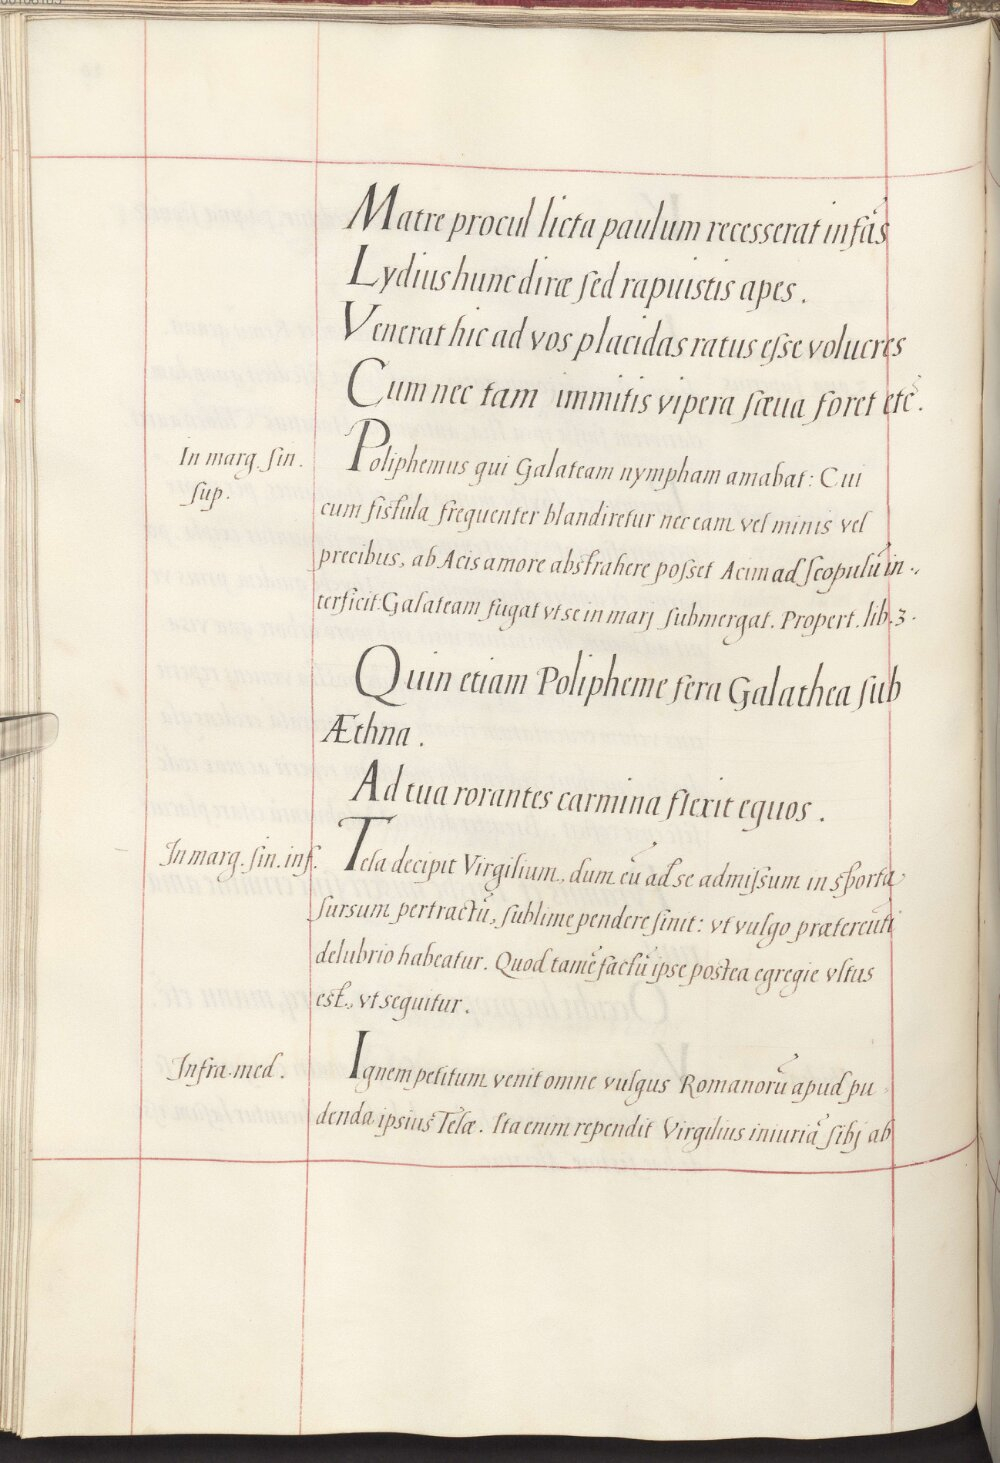 Matre procul licta paulum recesserat infãs
Lydius hunc diræ sed rapuistis apes.
Venerat hic ad vos placidas ratus esse volucres
Cum nec tam immitis vipera sæua foret etc̃.
In marg. sin.
sup.
Poliphemus qui Galateam nympham amabat: Cui
cum fistula frequenter blandiretur nec eam vel minis vel
precibus, ab Acis amore abstrahere posset Acim ad scopulũ in..
terficit Galateam fugat vt se in marj submergat. Propert. lib. 3.
Quin etiam Polipheme fera Galathea sub
Æthna.
Ad tua rorantes carmina flexit equos.
In marg. sin. inf.
Tela decipit Virgilium, dum eũ ad se admissum in sporta
sursum pertractũ, sublime pendere sinit: vt vulgo prætereũti
delubrio habeatur. Quod tamẽ factũ ipse postea egregie vltus
est, vt sequitur.
Infra. med.
Ignem petitum venit omne vulgus Romanorũ apud pu
denda ipsius Telæ. Ita enim rependit Virgilius iniuriã sibj ab